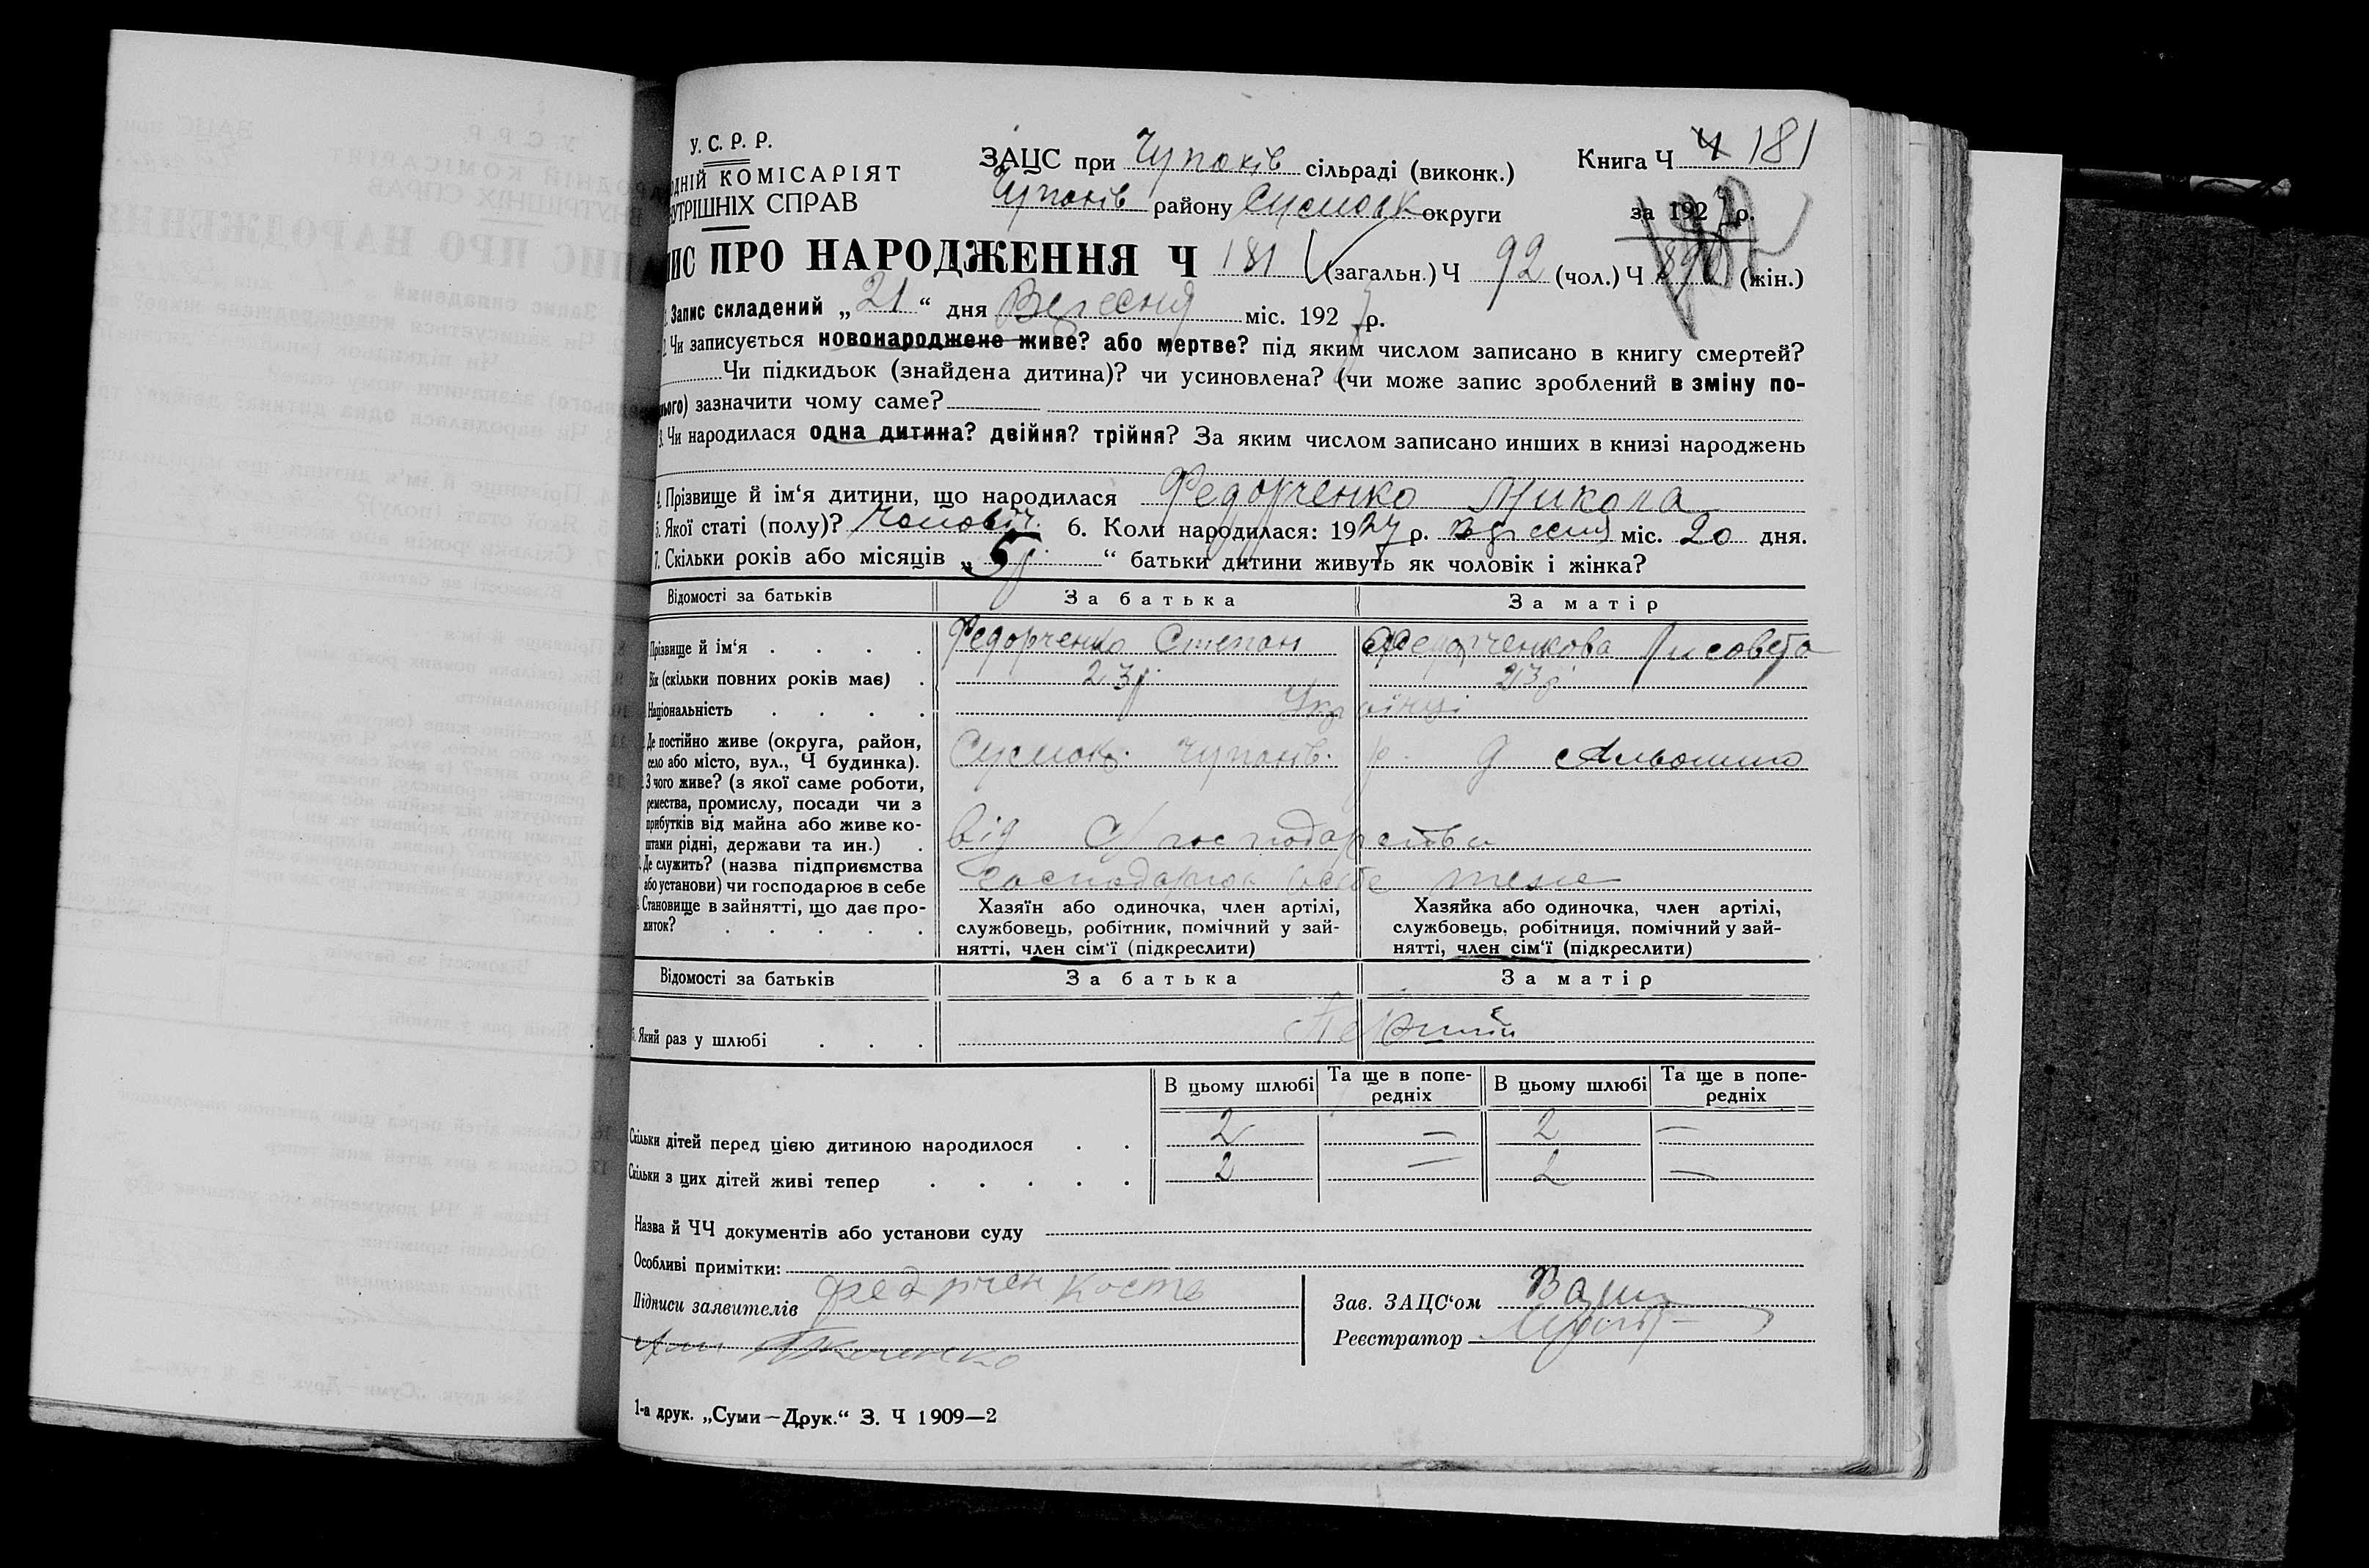 У. С. Р. Р.
ОДНІЙ КОМІСАРІЯТ
УТРІШНІХ СПРАВ
ЗАЦС при Чупахів сільраді (виконк.)
Чупахів району Сумськ округи
Книга Ч 181
за 1927 р.
ИС ПРО НАРОДЖЕННЯ Ч 181 (загальн.) Ч 92 (чол.) Ч 89 (жін.)
1. Запис складений „21“ дня Вересня міс. 1927 р.
2. Чи записується новонароджене живе? або мертве? під яким числом записано в книгу смертей?
Чи підкидьок (знайдена дитина)? чи усиновлена? (чи може запис зроблений в зміну по-
нього) зазначити чому саме?
3. Чи народилася одна дитина? двійня? трійня? За яким числом записано инших в книзі народжень
4. Прізвище й ім‘я дитини, що народилася Федорченко Микола
5. Якої статі (полу)? чоловіч. 6. Коли народилася: 1927 р. вересня міс. 20 дня.
7. Скільки років або місяців „5р.“ батьки дитини живуть як чоловік і жінка?
Відомості за батьків За батька За матір
Прізвище й ім‘я . . . . Федорченко Степан Федорченкова Лисовета
Вік (скільки повних років має) . 23р. 23р.
Національність . . . . Українці
Де постійно живе (округа, район,
село або місто, вул., Ч будинка). Сумськ. Чупахів. р.
З чого живе? (з якої саме роботи,
ремества, промислу, посади чи з
прибутків від майна або живе ко-
штами рідні, держави та ин.) . від с/господарства
Де служить? (назва підприємства
або установи) чи господарює в себе господарює в себе теж
Становище в зайнятті, що дає про-
житок? . . . . .
Хазяїн або одиночка, член артілі,
службовець, робітник, помічний у зай-
нятті, член сім‘ї (підкреслити)
Хазяйка або одиночка, член артілі,
службовець, робітниця, помічний у зай-
нятті, член сім‘ї (підкреслити)
Відомості за батьків За батька За матір
Який раз у шлюбі . . . Перший
В цьому шлюбі Та ще в попе-редніх В цьому шлюбі Та ще в попе-редніх
Скільки дітей перед цією дитиною народилося . . 2 — 2 —
Скільки з цих дітей живі тепер . . . . . 2 — 2 —
Назва й ЧЧ документів або установи суду
Особливі примітки:
Підписи заявителів
Зав. ЗАЦС‘ом
Реєстратор
1-а друк. „Суми—Друк.“ З. Ч 1909—2